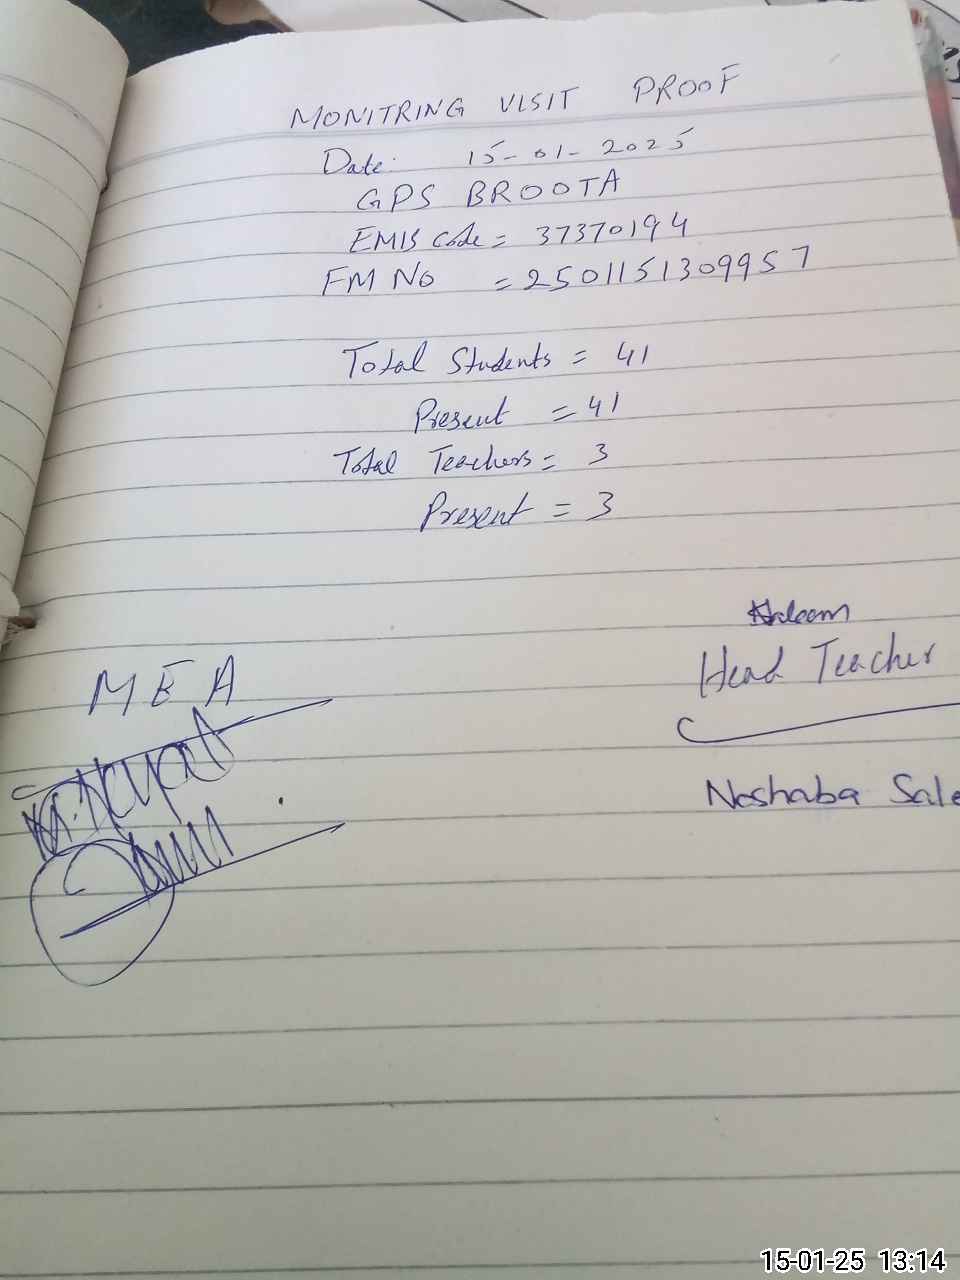 MONITRING VISIT PROOF
Date: 15-01-2025
GPS BROOTA
EMIS Code = 37370194
FM NO = 2501151309957
Total Students = 41
Present = 41
Total Teachers = 3
Present = 3
Head Teacher
MEA
Noshaba Sale
15-01-25 13:14